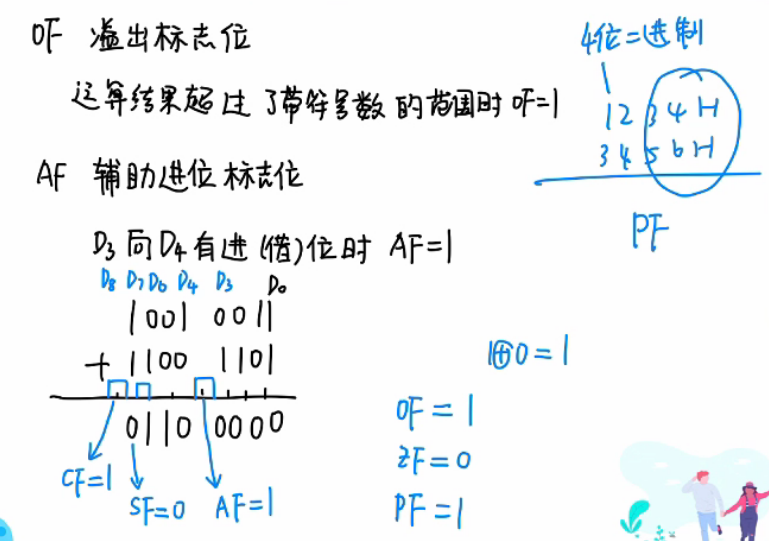 OF 溢出标志位
运算结果超过了带符号数的范围时 OF=1
AF 辅助进位标志位
D3向D4有进(借)位时 AF=1
D8 D7 D6 D4 D3 D0
1001 0011
+ 1100 1101
0110 0000
CF=1
SF=0 AF=1
4位=进制
1234H
3456H
PF
1⊕0=1
OF=1
ZF=0
PF=1